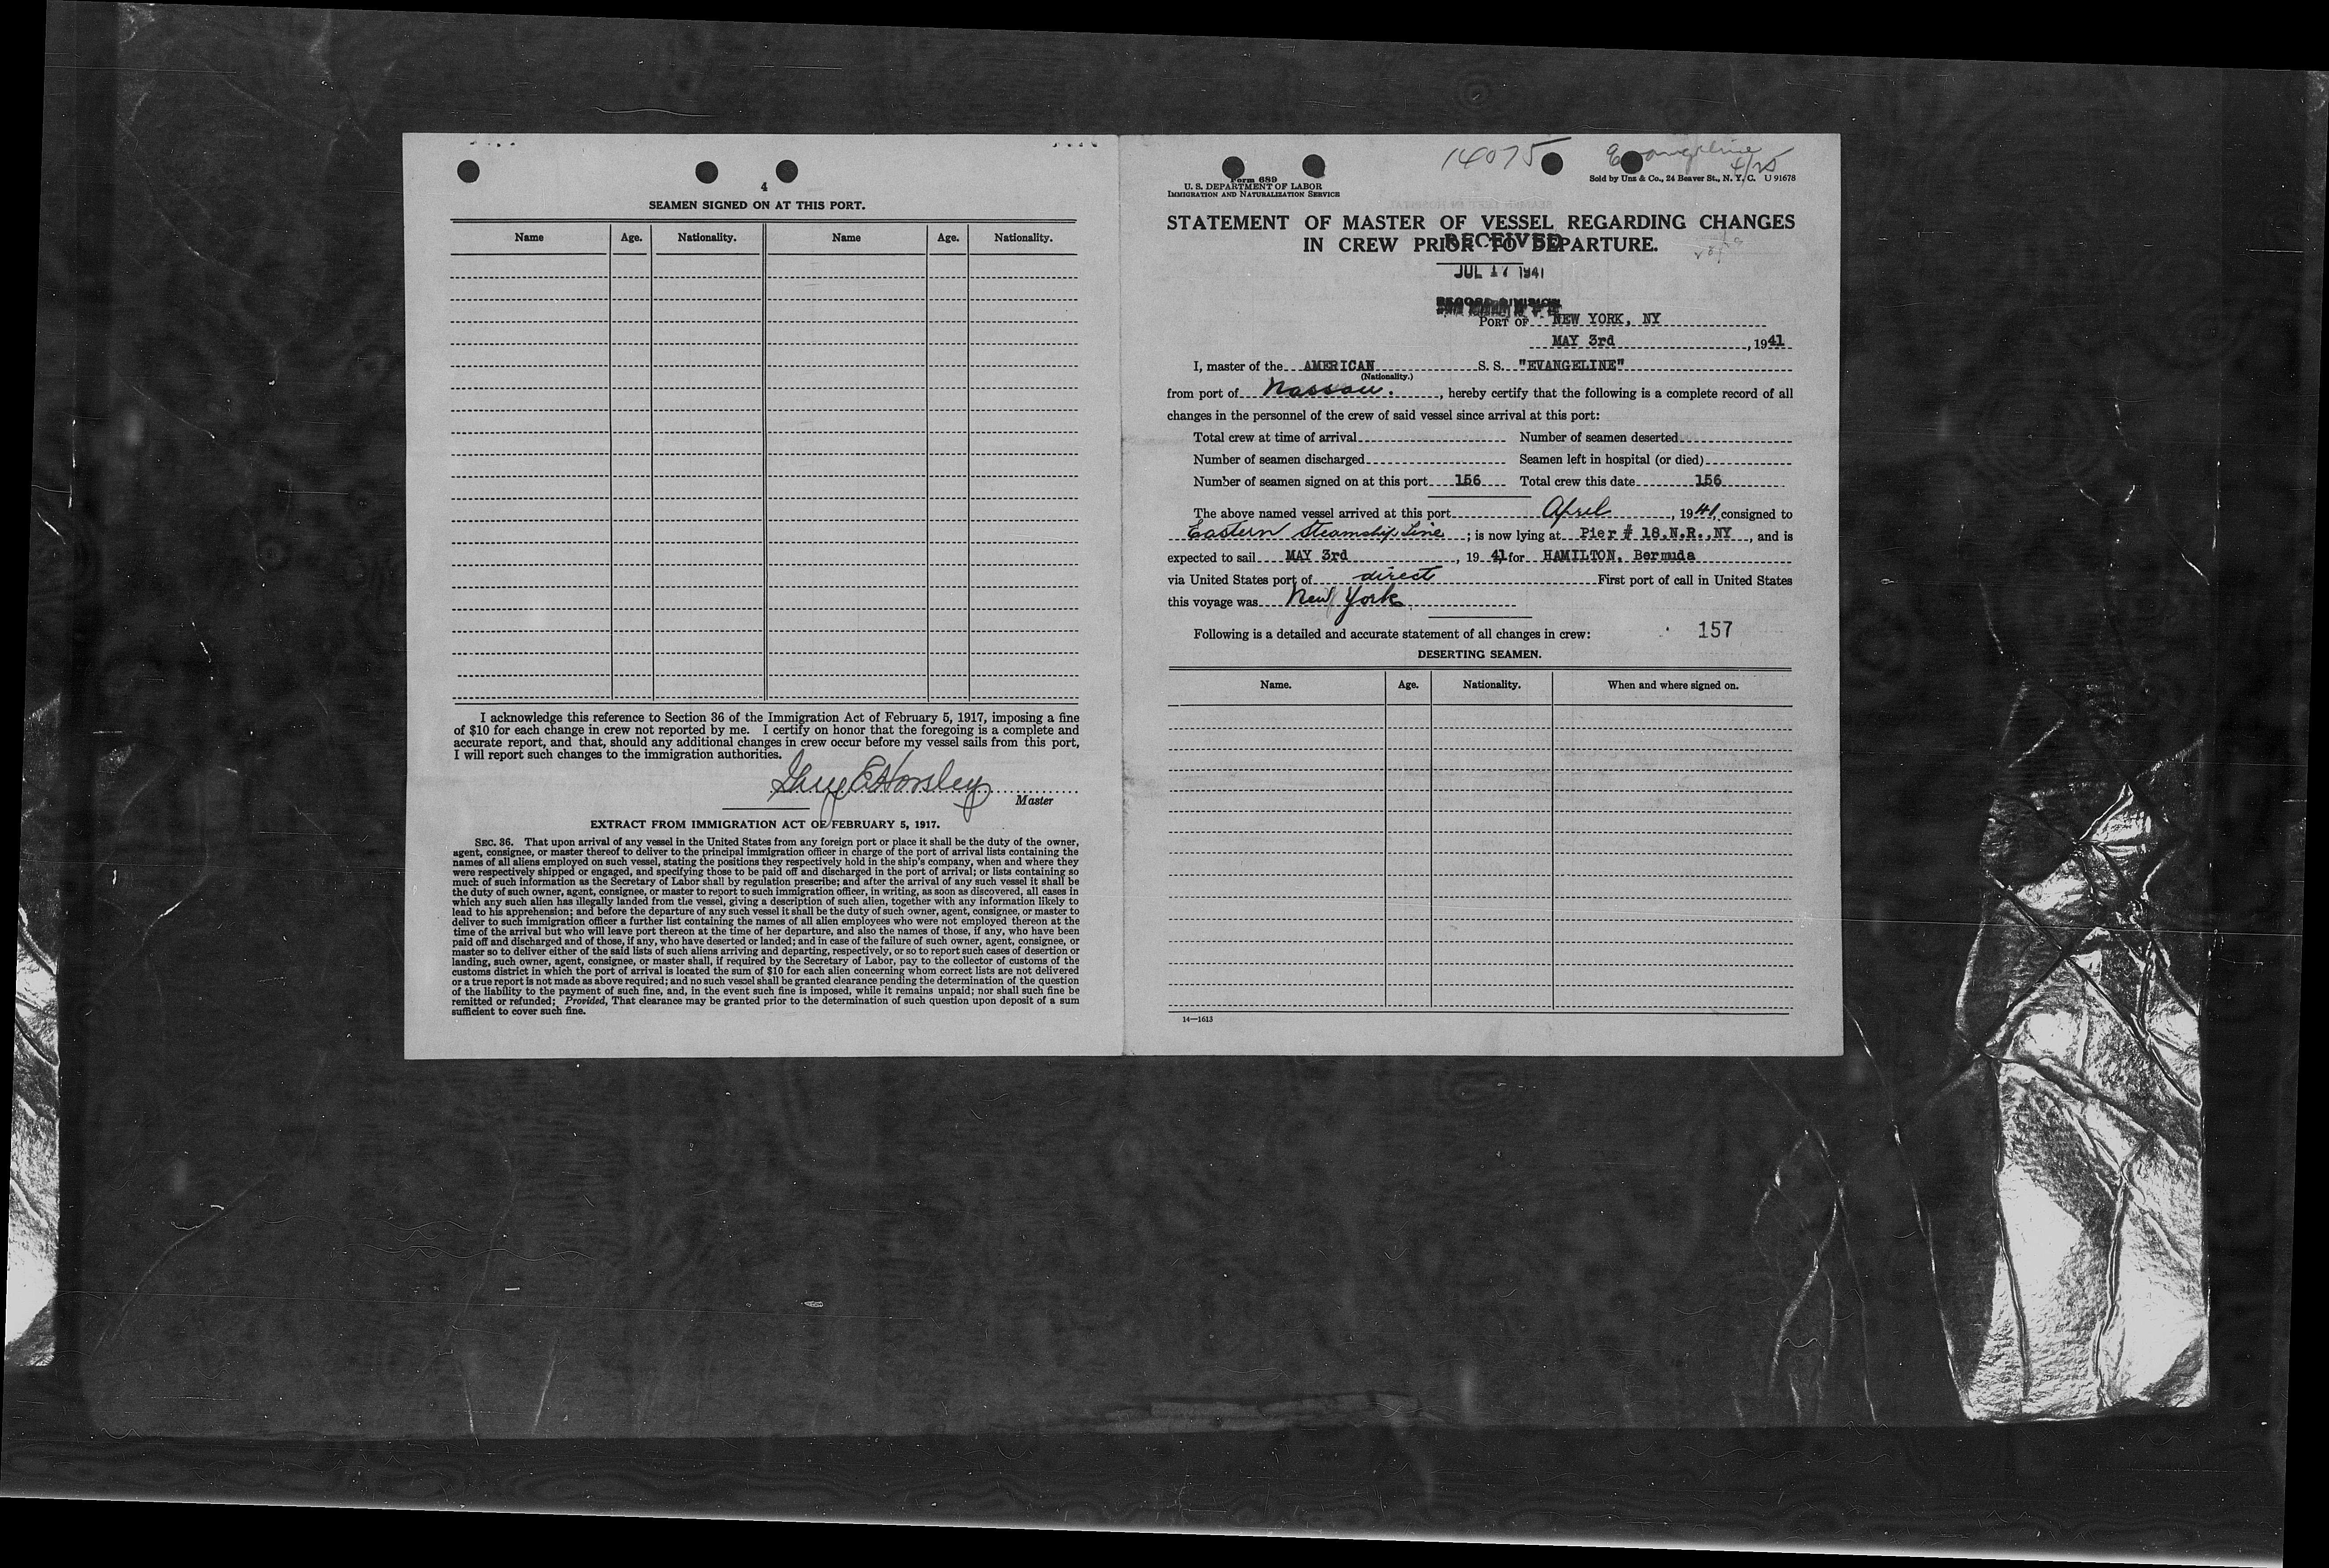 4
SEAMEN SIGNED ON AT THIS PORT.
Name Age. Nationality. Name Age. Nationality.
I acknowledge this reference to Section 36 of the Immigration Act of February 5, 1917, imposing a fine
of $10 for each change in crew not reported by me. I certify on honor that the foregoing is a complete and
accurate report, and that, should any additional changes in crew occur before my vessel sails from this port,
I will report such changes to the immigration authorities.
E Horsley
Master
EXTRACT FROM IMMIGRATION ACT OF FEBRUARY 5, 1917.
SEC. 36. That upon arrival of any vessel in the United States from any foreign port or place it shall be the duty of the owner,
agent, consignee, or master thereof to deliver to the principal immigration officer in charge of the port of arrival lists containing the
names of all aliens employed on such vessel, stating the positions they respectively hold in the ship's company, when and where they
were respectively shipped or engaged, and specifying those to be paid off and discharged in the port of arrival; or lists containing so
much of such information as the Secretary of Labor shall by regulation prescribe; and after the arrival of any such vessel it shall be
the duty of such owner, agent, consignee, or master to report to such immigration officer, in writing, as soon as discovered, all cases in
which any such alien has illegally landed from the vessel, giving a description of such alien, together with any information likely to
lead to his apprehension; and before the departure of any such vessel it shall be the duty of such owner, agent, consignee, or master to
deliver to such immigration officer a further list containing the names of all alien employees who were not employed thereon at the
time of the arrival but who will leave port thereon at the time of her departure, and also the names of those, if any, who have been
paid off and discharged and of those, if any, who have deserted or landed; and in case of the failure of such owner, agent, consignee, or
master so to deliver either of the said lists of such aliens arriving and departing, respectively, or so to report such cases of desertion or
landing, such owner, agent, consignee, or master shall, if required by the Secretary of Labor, pay to the collector of customs of the
customs district in which the port of arrival is located the sum of $10 for each alien concerning whom correct lists are not delivered
or a true report is not made as above required; and no such vessel shall be granted clearance pending the determination of the question
of the liability to the payment of such fine, and, in the event such fine is imposed, while it remains unpaid; nor shall such fine be
remitted or refunded; Provided, That clearance may be granted prior to the determination of such question upon deposit of a sum
sufficient to cover such fine.
14075 Evangeline
4/25
Form 689
U. S. DEPARTMENT OF LABOR
IMMIGRATION AND NATURALIZATION SERVICE
Sold by Unz & Co., 24 Beaver St., N. Y. C. U 91678
STATEMENT OF MASTER OF VESSEL REGARDING CHANGES
IN CREW PRIOR TO DEPARTURE.
RECEIVED
JUL 17 1941
RECORD DIVISION
PORT OF NEW YORK, NY
MAY 3rd, 1941
I, master of the AMERICAN S. S. "EVANGELINE"
(Nationality.)
from port of Nassau., hereby certify that the following is a complete record of all
changes in the personnel of the crew of said vessel since arrival at this port:
Total crew at time of arrival Number of seamen deserted
Number of seamen discharged Seamen left in hospital (or died)
Number of seamen signed on at this port 156 Total crew this date 156
The above named vessel arrived at this port April, 1941, consigned to
Eastern Steamship Line; is now lying at Pier # 18.N.R.,NY, and is
expected to sail MAY 3rd, 1941 for HAMILTON, Bermuda
via United States port of direct First port of call in United States
this voyage was New York
Following is a detailed and accurate statement of all changes in crew: 157
DESERTING SEAMEN.
Name. Age. Nationality. When and where signed on.
14—1613